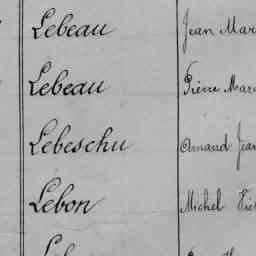 Lebeau Jean Mar
Lebeau Pierre Mar
Lebeschu Amand Jean
Lebon Michel